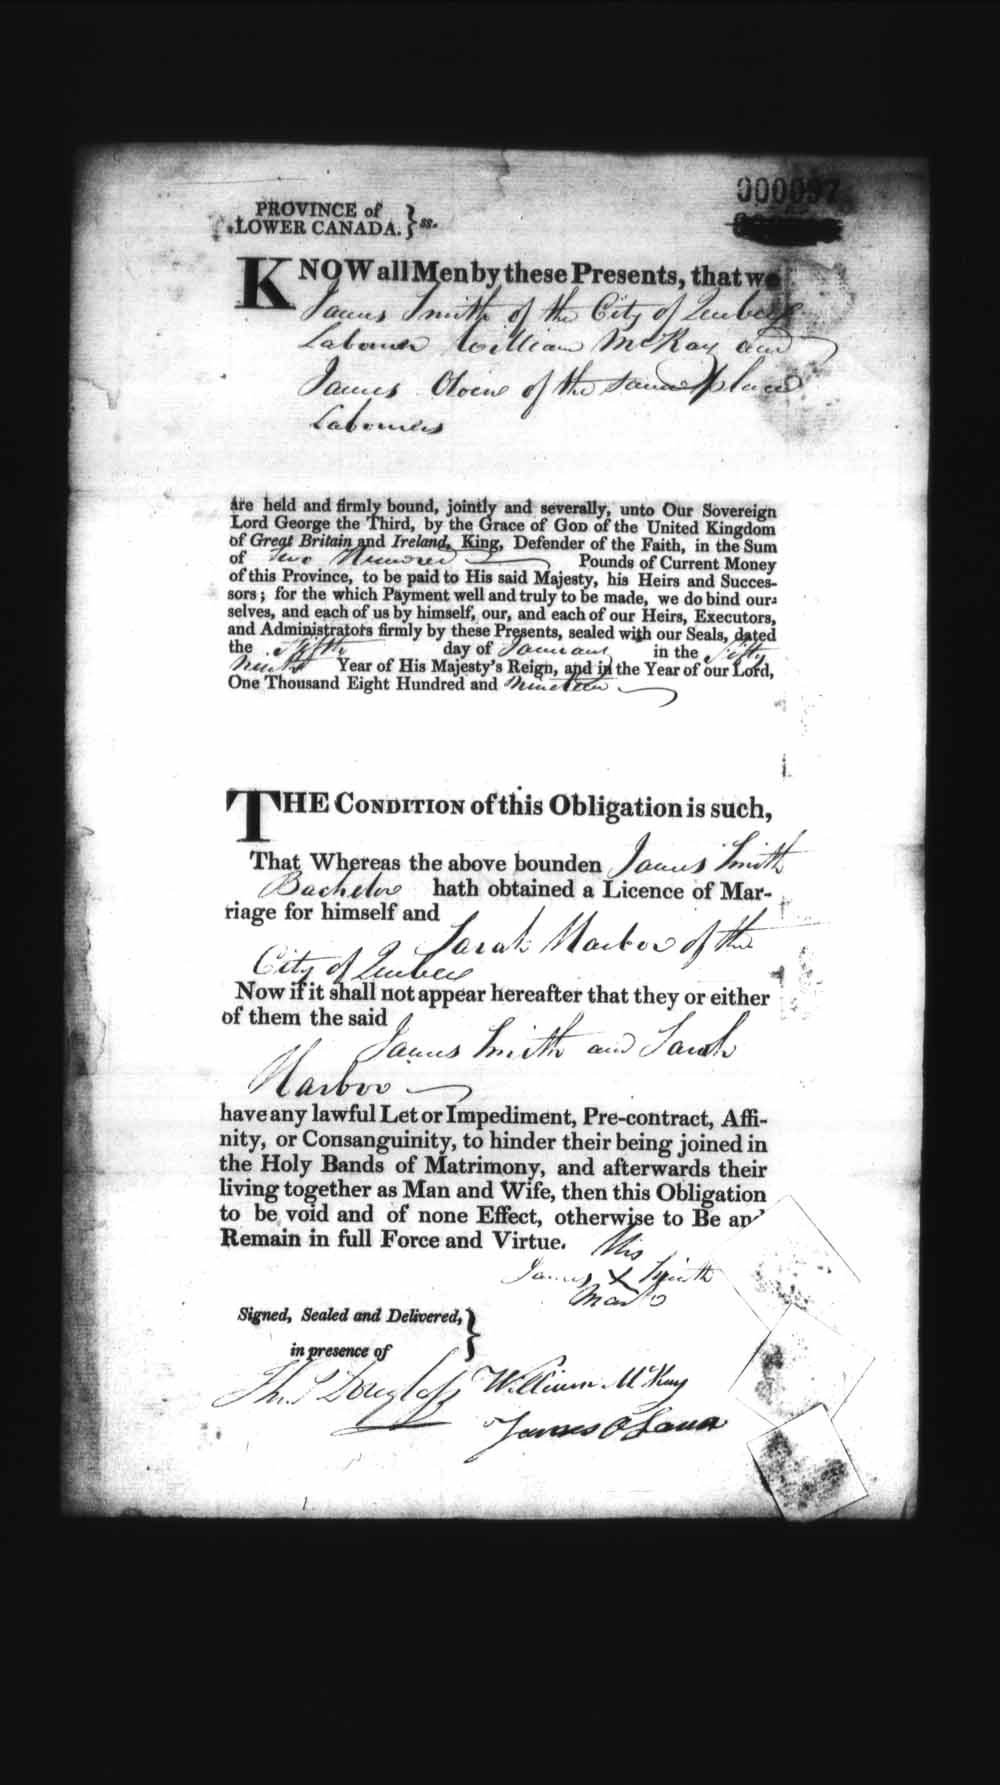 PROVINCE of
LOWER CANADA. } ss.
KNOW all Men by these Presents, that we
James Smith of the City of Quebec
Labourer William McKay and
James of the same place
Labourers
Are held and firmly bound, jointly and severally, unto Our Sovereign
Lord George the Third, by the Grace of GOD of the United Kingdom
of Great Britain and Ireland, King, Defender of the Faith, in the Sum
of Two Hundred Pounds of Current Money
of this Province, to be paid to His said Majesty, his Heirs and Succes-
sors; for the which Payment well and truly to be made, we do bind our-
selves, and each of us by himself, our, and each of our Heirs, Executors,
and Administrators firmly by these Presents, sealed with our Seals, dated
the fifth day of January in the fifty
ninth Year of His Majesty's Reign, and in the Year of our Lord,
One Thousand Eight Hundred and nineteen
THE CONDITION of this Obligation is such,
That Whereas the above bounden James Smith
Bachelor hath obtained a Licence of Mar-
riage for himself and
Sarah Marboo of the
City of Quebec
Now if it shall not appear hereafter that they or either
of them the said
James Smith and Sarah
Marboo
have any lawful Let or Impediment, Pre-contract, Affi-
nity, or Consanguinity, to hinder their being joined in
the Holy Bands of Matrimony, and afterwards their
living together as Man and Wife, then this Obligation
to be void and of none Effect, otherwise to Be and
Remain in full Force and Virtue.
His
James X Smith
Mark
Signed, Sealed and Delivered, }
in presence of
Thos Douglass William McKay
James